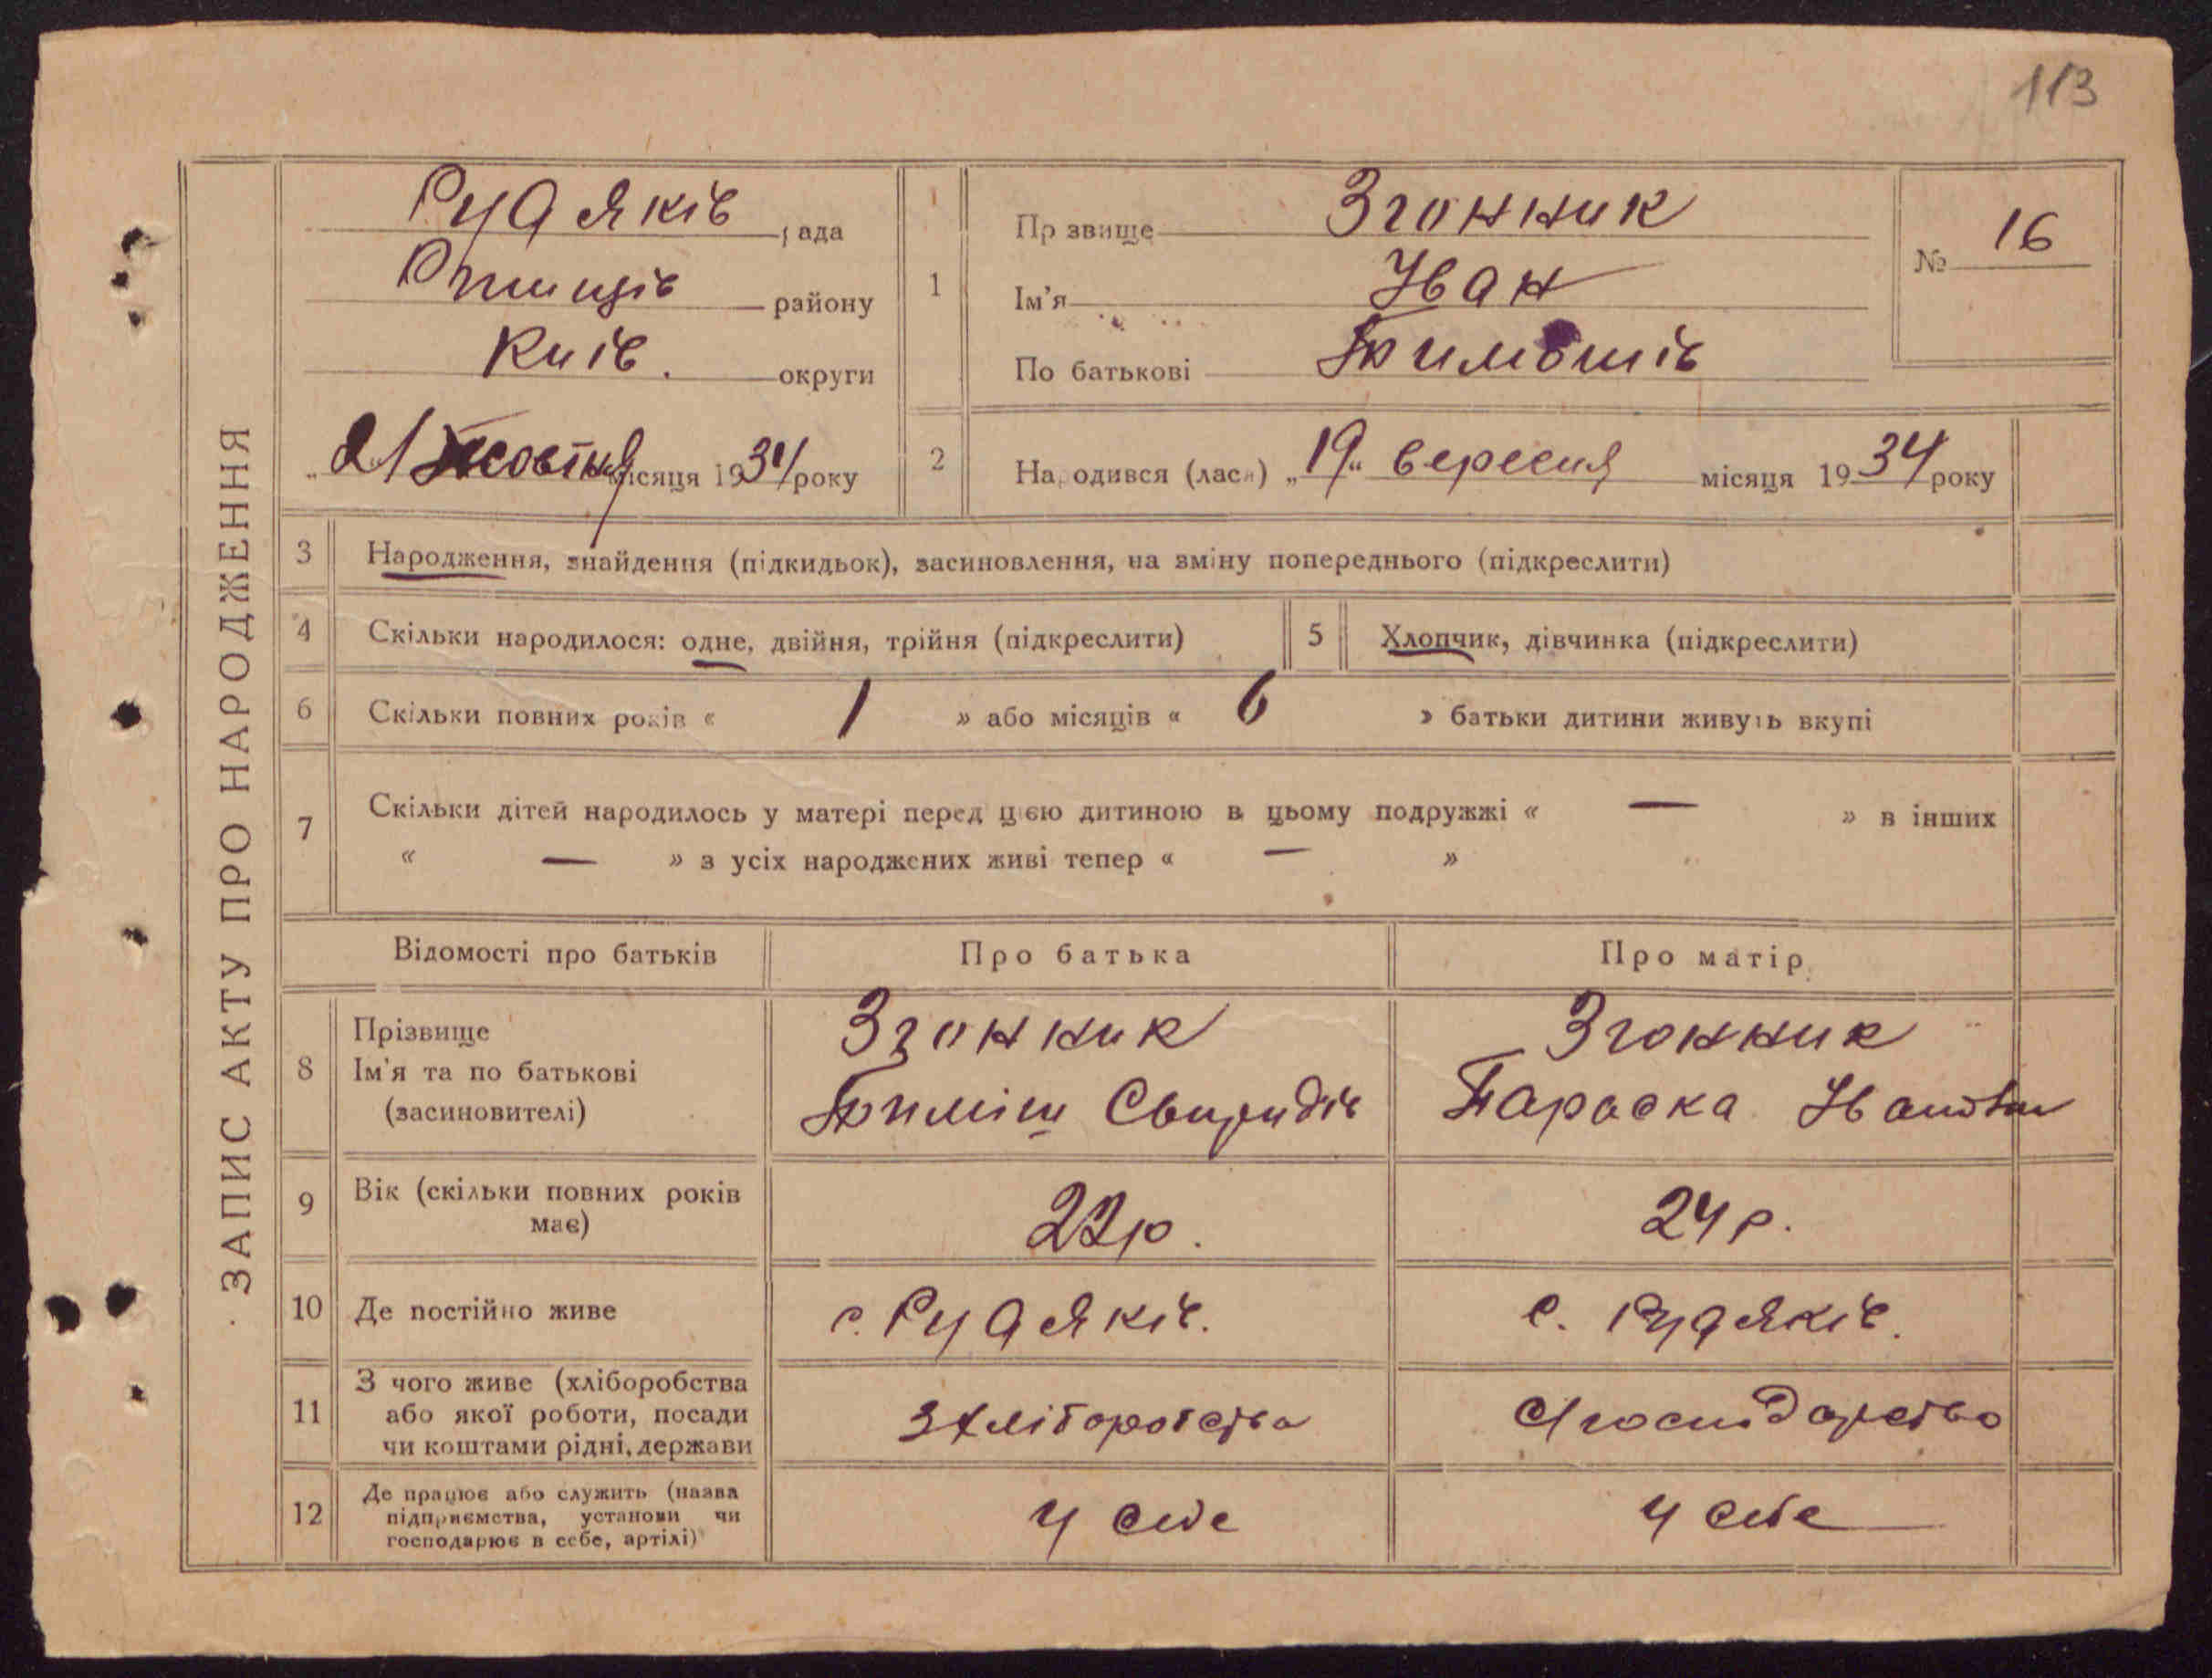 113
ЗАПИС АКТУ ПРО НАРОДЖЕННЯ
Рудяків рада
району
Київ. округи
„21 Жовтня місяця 1934 року
1 Прізвище Згонник
Ім'я Іван
По батькові Тимошів
№ 16
2 Народився (лася) „19“ вересня місяця 1934 року
3 Народження, знайдення (підкидьок), засиновлення, на зміну попереднього (підкреслити)
4 Скільки народилося: одне, двійня, трійня (підкреслити)
5 Хлопчик, дівчинка (підкреслити)
6 Скільки повних років « 1 » або місяців « 6 » батьки дитини живуть вкупі
7 Скільки дітей народилось у матері перед цією дитиною в цьому подружжі « — » в інших
« — » з усіх народжених живі тепер « — »
Відомості про батьків Про батька Про матір
8 Прізвище Згонник Згонник
Ім'я та по батькові
(засиновителі) Тиміш Свиридів Параска Іванівна
9 Вік (скільки повних років
має) 22р. 24р.
10 Де постійно живе с. Рудяків. с. Рудяків.
11 З чого живе (хліборобства
або якої роботи, посади
чи коштами рідні, держави З хліборобства господарство
12 Де працює або служить (назва
підприємства, установи чи
господарює в себе, артілі) у себе у себе